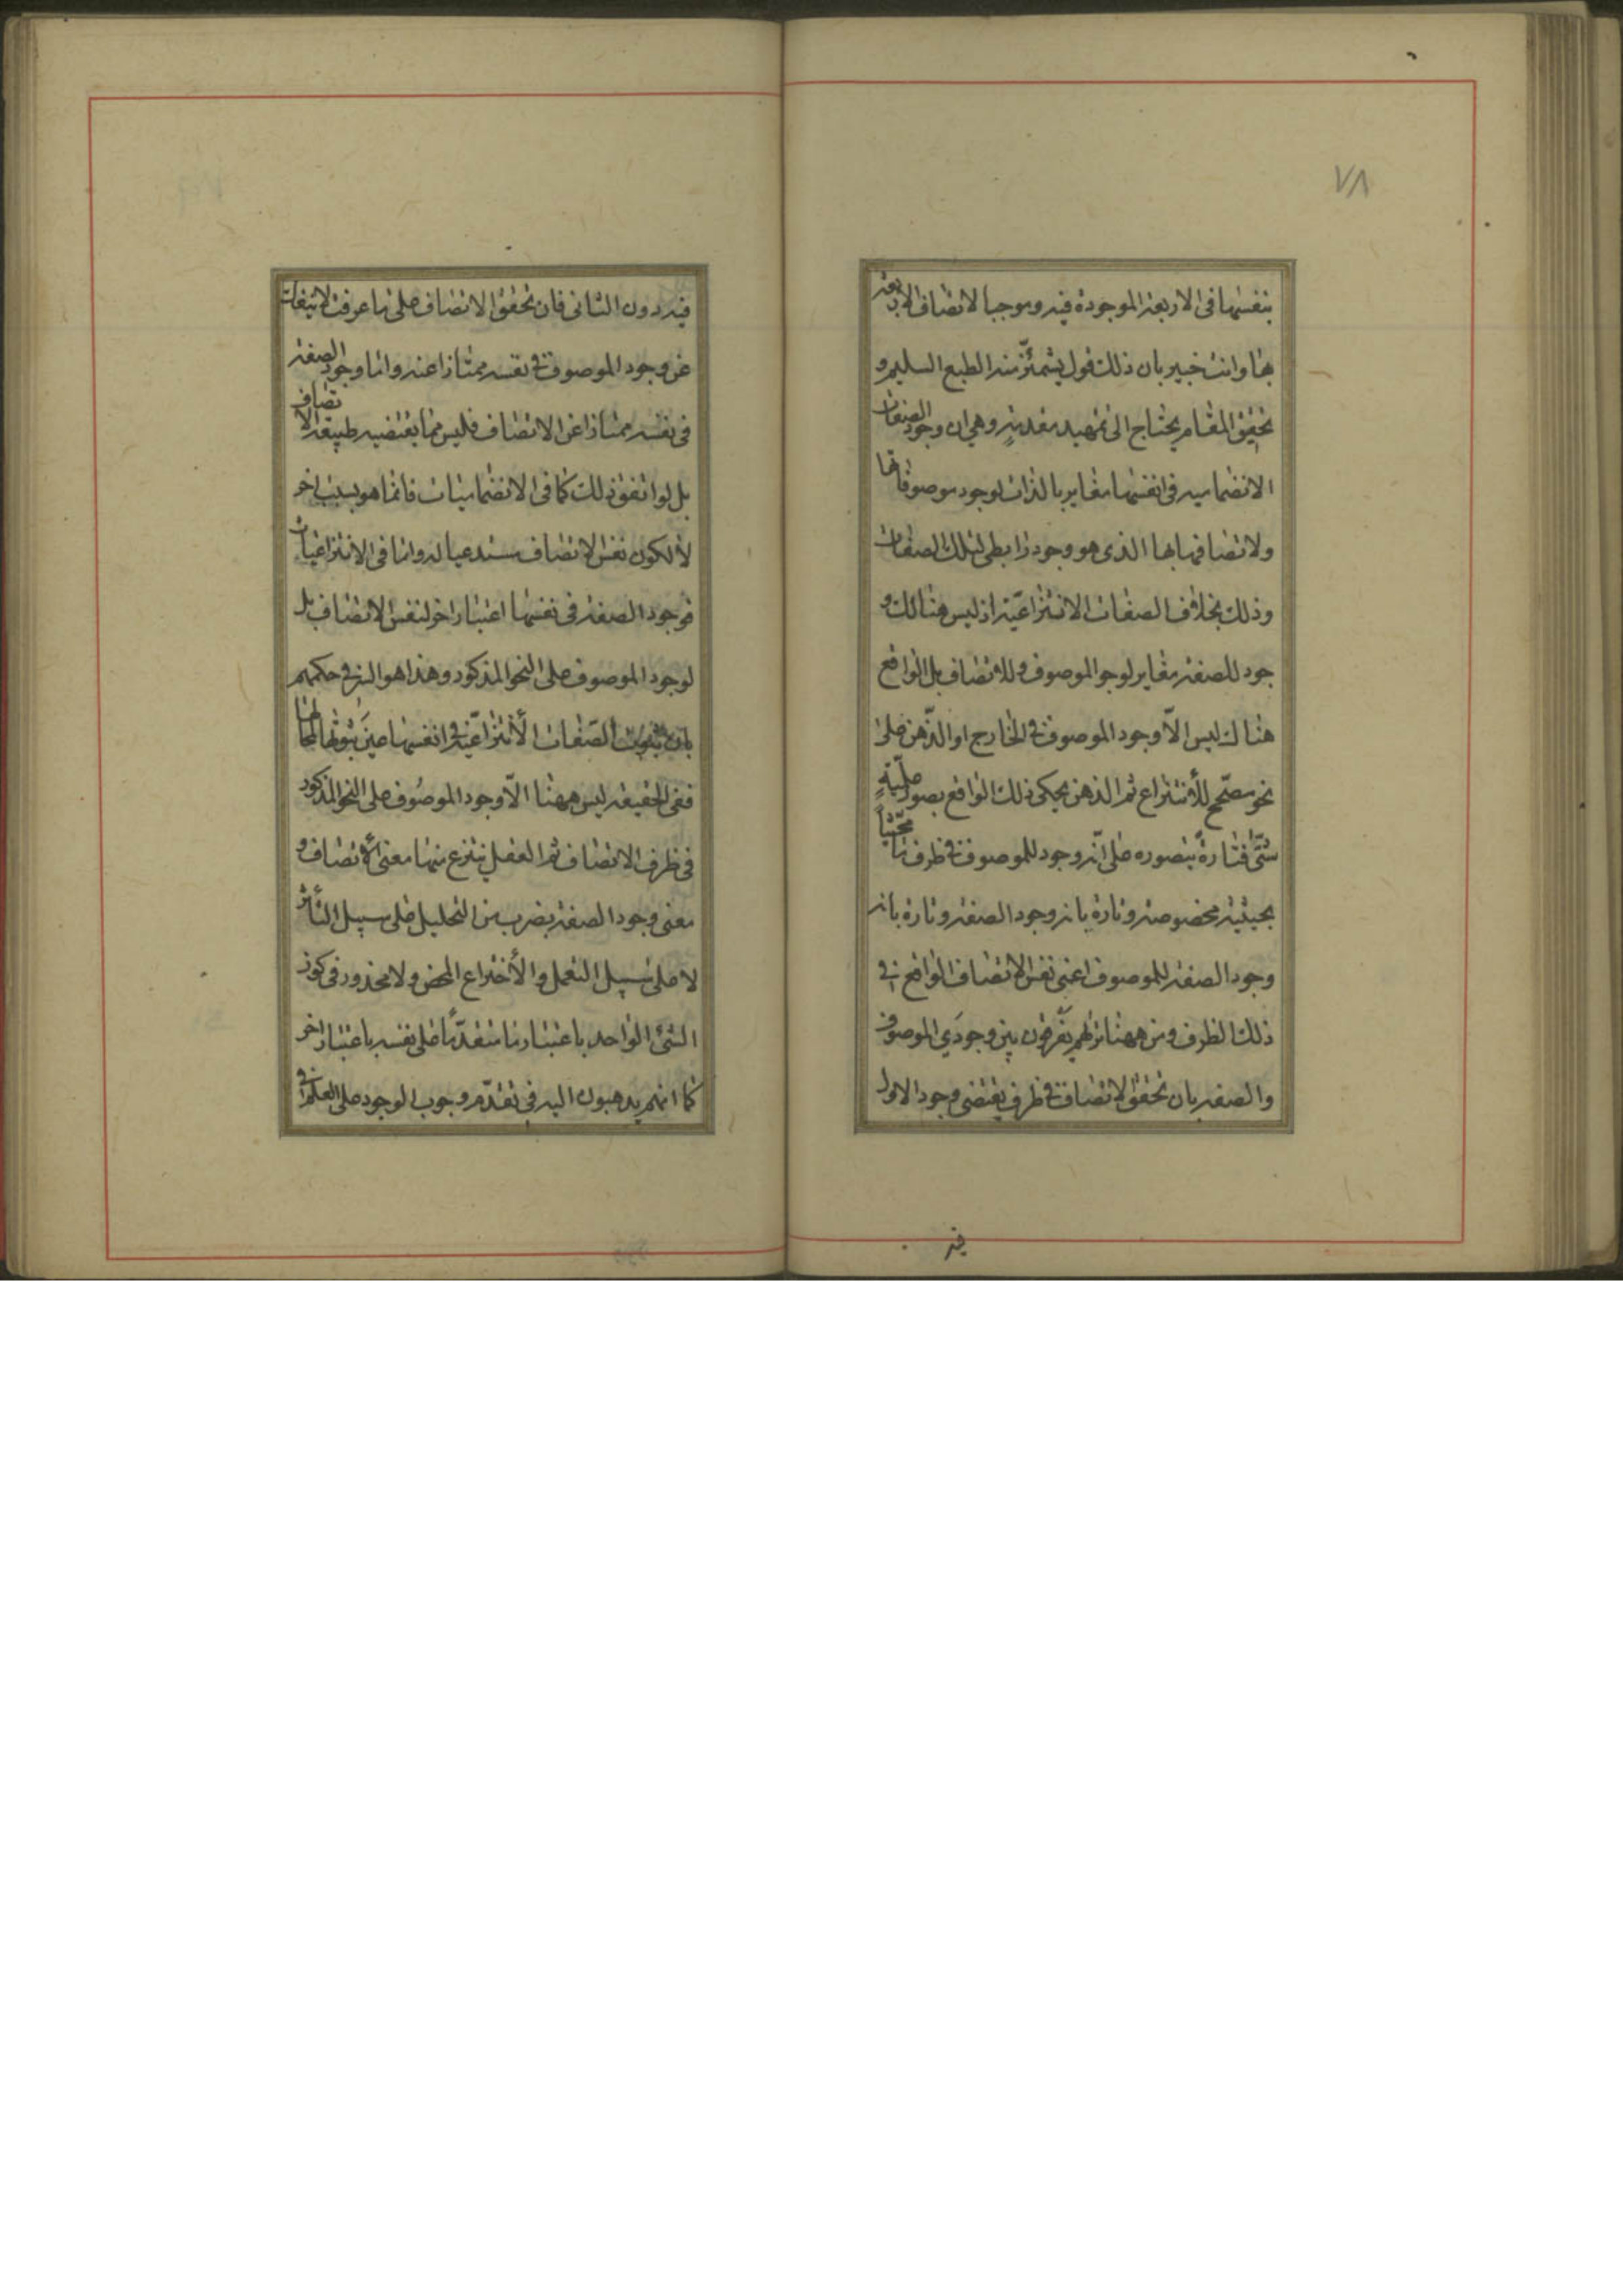 ٧٨
بنفسها فى الاربعة الموجودة فيه وموجبا لاتصاف الاربعة
بها وانت خبير بان ذلك قول يشمئزّ منه الطبع السليم و
تحقيق المقام يحتاج الى تمهيد مقدمةٍ وهي ان وجود الصفات
الانضماميه فى انفسها مغاير بالذات لوجود موصوفاتها
ولاتصافها بها الذى هو وجود رابطى لتلك الصفات
وذلك بخلاف الصفات الانتزاعيّة اذ ليس هنالك و
جود للصفة مغاير لوجو الموصوف وللاتصاف بل الواقع
هناك ليس الاّ وجود الموصوف فى الخارج او الذّهن على
نحو مصحّح للأنتزاع ثم الذهن يحكى ذلك الواقع بصور علميّةٍ
شتّى فتارةً يتصوره على انّه وجود للموصوف فى ظرف ما محيّثاً
بحيثيّة مخصوصة وتارة بانه وجود الصفة وتارة بانه
وجود الصفة للموصوف اعنى نفس الاتصاف الواقع فى
ذلك الظرف ومن ههنا تراهم يفرّقون بين وجودَي الموصوف
والصفة بان تحقق الاتصاف فى ظرف يقتضى وجود الاول
فيه
فيه دون الثانى فان تحقق الاتصاف على ما عرفت لا ينفك
عن وجود الموصوف فى نفسه ممتازا عنه واما وجود الصفة
فى نفسه ممتازا عن الاتصاف فليس مما يقتضيه طبيعة الاتصاف
بل لو اتفق ذلك كما فى الانضماميات فانما هو بسبب اخر
لا لكون نفس الاتصاف مستدعيا له واما فى الانتزاعيات
فوجود الصفة فى نفسها اعتبار اخر لنفس الاتصاف بل
لوجود الموصوف على النحو المذكور وهذا هو السر فى حكمهم
بان ثبوت الصّفات الأنتزاعيّة فى انفسها عينَ ثبوتها لمحالها
ففى الحقيقة ليس ههنا الاّ وجود الموصُوف على النحو المذكور
فى ظرف الاتصاف ثم العقل ينتزع منها معنى الأتصاف و
معنى وجود الصفة بضرب من التحليل على سبيل التأثر
لا على سبيل التعمل والأختراع المحض ولا محذور فى كون
الشئ الواحد باعتبار ما متقدّمًا على نفسه باعتبار اخر
كما انهم يذهبون اليه فى تقدّم وجوب الوجود على العلم فى